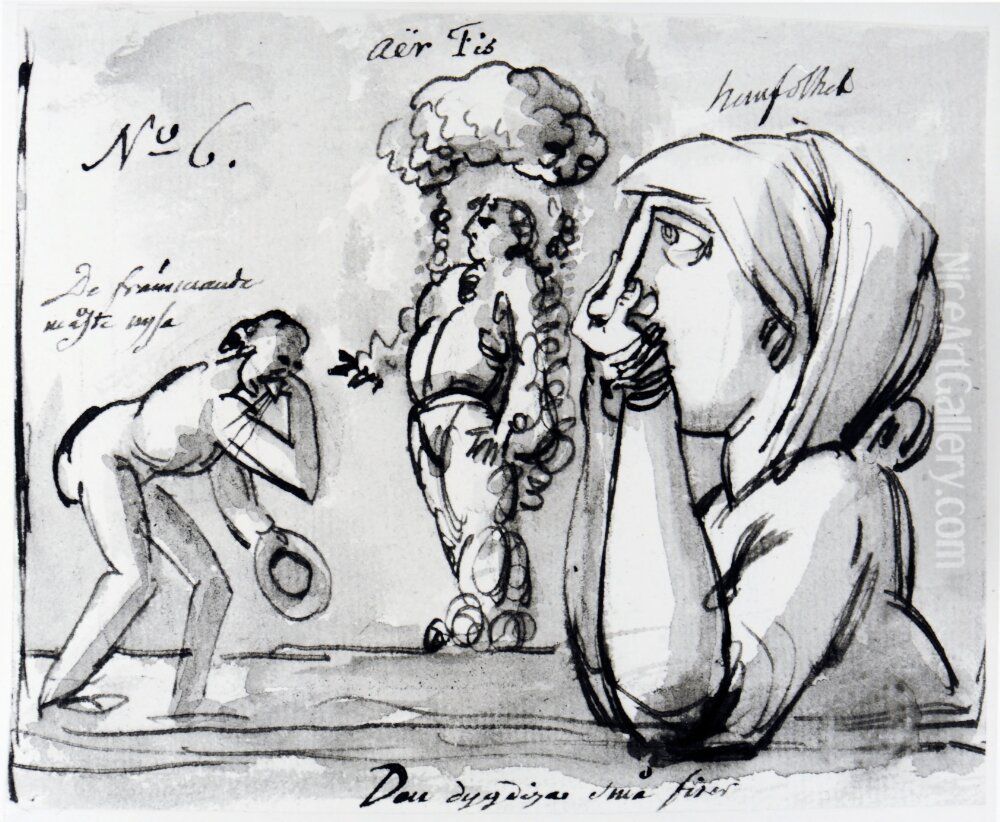 aër Fis
hemfolket
Nº 6.
De främmande
måste nysa
Den dygdiga små fiser
NiceArtGallery.com